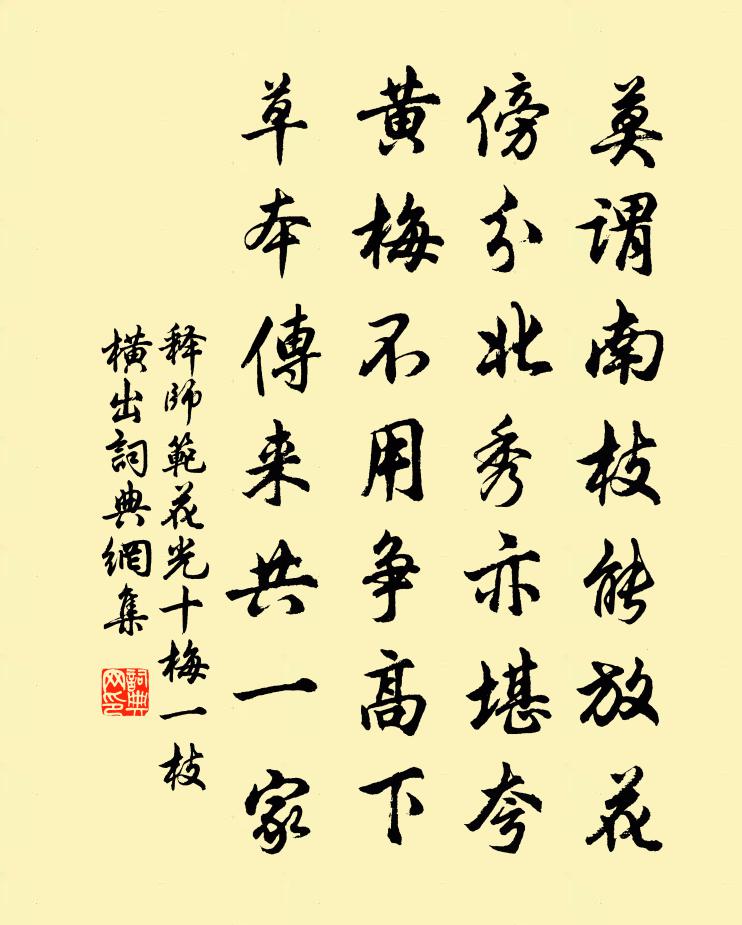 莫謂南枝能放花
傍分北秀亦堪夸
黄梅不用争高下
草本傳来共一家
释師範花光十梅一枝
橫出詞典網集
詞典
网印